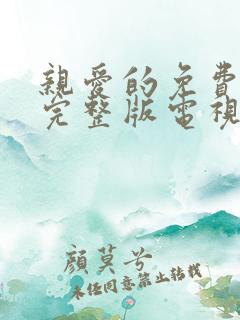 親愛的免費
完整版電視
顏莫兮
未經同意禁止轉載